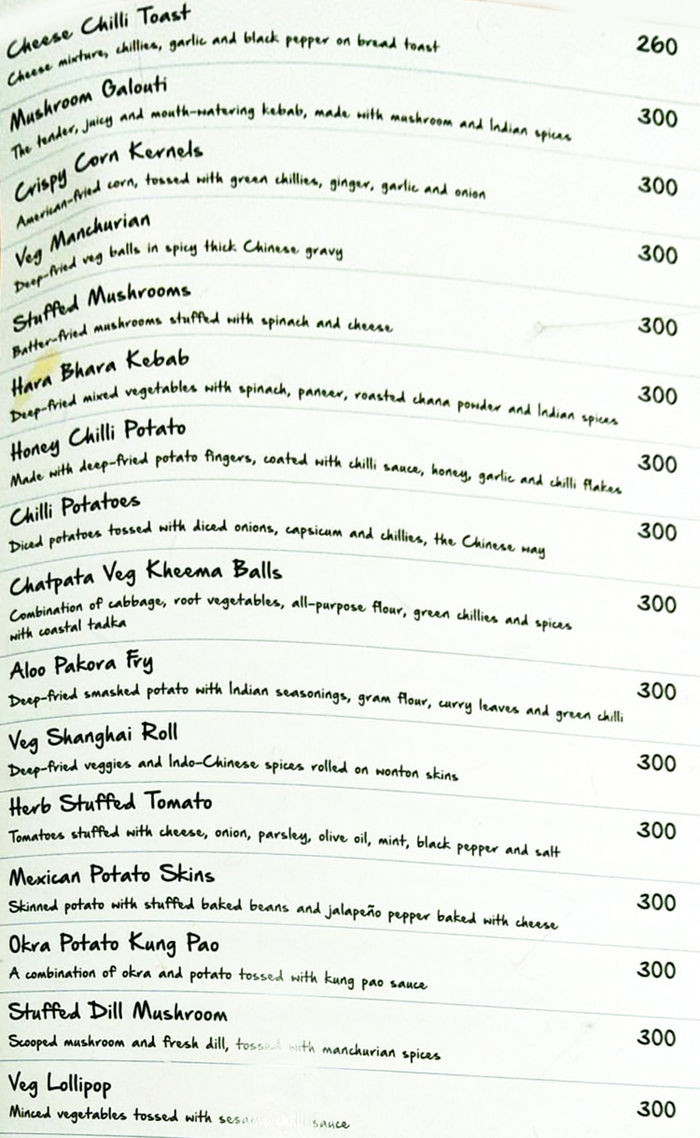 Cheese Chilli Toast 260
Cheese mixture, chillies, garlic and black pepper on bread toast
Mushroom Galouti 300
The tender, juicy and mouth-watering kebab, made with mushroom and Indian spices
Crispy Corn Kernels 300
American-fried corn, tossed with green chillies, ginger, garlic and onion
Veg Manchurian 300
Deep-fried veg balls in spicy thick Chinese gravy
Stuffed Mushrooms 300
Batter-fried mushrooms stuffed with spinach and cheese
Hara Bhara Kebab 300
Deep-fried mixed vegetables with spinach, paneer, roasted chana powder and Indian spices
Honey Chilli Potato 300
Made with deep-fried potato fingers, coated with chilli sauce, honey, garlic and chilli flakes
Chilli Potatoes 300
Diced potatoes tossed with diced onions, capsicum and chillies, the Chinese way
Chatpata Veg Kheema Balls 300
Combination of cabbage, root vegetables, all-purpose flour, green chillies and spices
with coastal tadka
Aloo Pakora Fry 300
Deep-fried smashed potato with Indian seasonings, gram flour, curry leaves and green chilli
Veg Shanghai Roll 300
Deep-fried veggies and Indo-Chinese spices rolled on wonton skins
Herb Stuffed Tomato 300
Tomatoes stuffed with cheese, onion, parsley, olive oil, mint, black pepper and salt
Mexican Potato Skins 300
Skinned potato with stuffed baked beans and jalapeño pepper baked with cheese
Okra Potato Kung Pao 300
A combination of okra and potato tossed with kung pao sauce
Stuffed Dill Mushroom 300
Scooped mushroom and fresh dill, tossed with manchurian spices
Veg Lollipop 300
Minced vegetables tossed with sauce